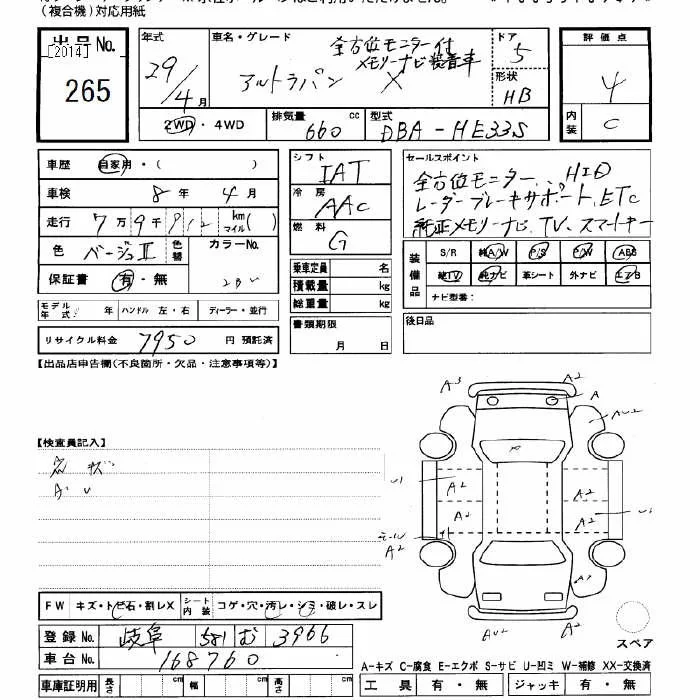 （複合機）対応用紙
出品No.
[2014]
265
年式 29/4月
車名・グレード 全方位モニター付
メモリーナビ装着車
アルトラパン X
ドア 5
形状 HB
評価点 4
内装 C
2WD・4WD
排気量 660 cc
型式 DBA-HE33S
車歴 自家用・（ ）
車検 8年 4月
走行 7万9千912 km マイル( )
色 ベージュII 色替 カラーNo.
保証書 有・無 ZBV
モデル年式 年 ハンドル 左・右 ディーラー・並行
リサイクル料金 7950 円 預託済
シフト IAT
冷房 AAC
燃料 G
乗車定員 名
積載量 kg
総重量 kg
書類期限
月 日
セールスポイント
全方位モニター、HID
レーダーブレーキサポート、ETC
純正メモリーナビ、TV、スマートキー
装備品
S/R 純A/W P/S P/W ABS
純TV 純ナビ 革シート 外ナビ エアB
ナビ型番：
後日品
【出品店申告欄(不良箇所・欠品・注意事項等)】
【検査員記入】
A・U
A3 A2 A2
A
AU2
U1 A2 A2
モール A2 A2 A2
A2
AU2
スペア
FW キズ・トビ石・割レX シート内装 コゲ・穴・汚レ・シミ・破レ・スレ
登録No. 岐阜 581 む 3966
車台No. 168760
A-キズ C-腐食 E-エクボ S-サビ U-凹ミ W-補修 XX-交換済
車庫証明用 長さ cm 幅 cm 高さ cm
工具 有・無 ジャッキ 有・無